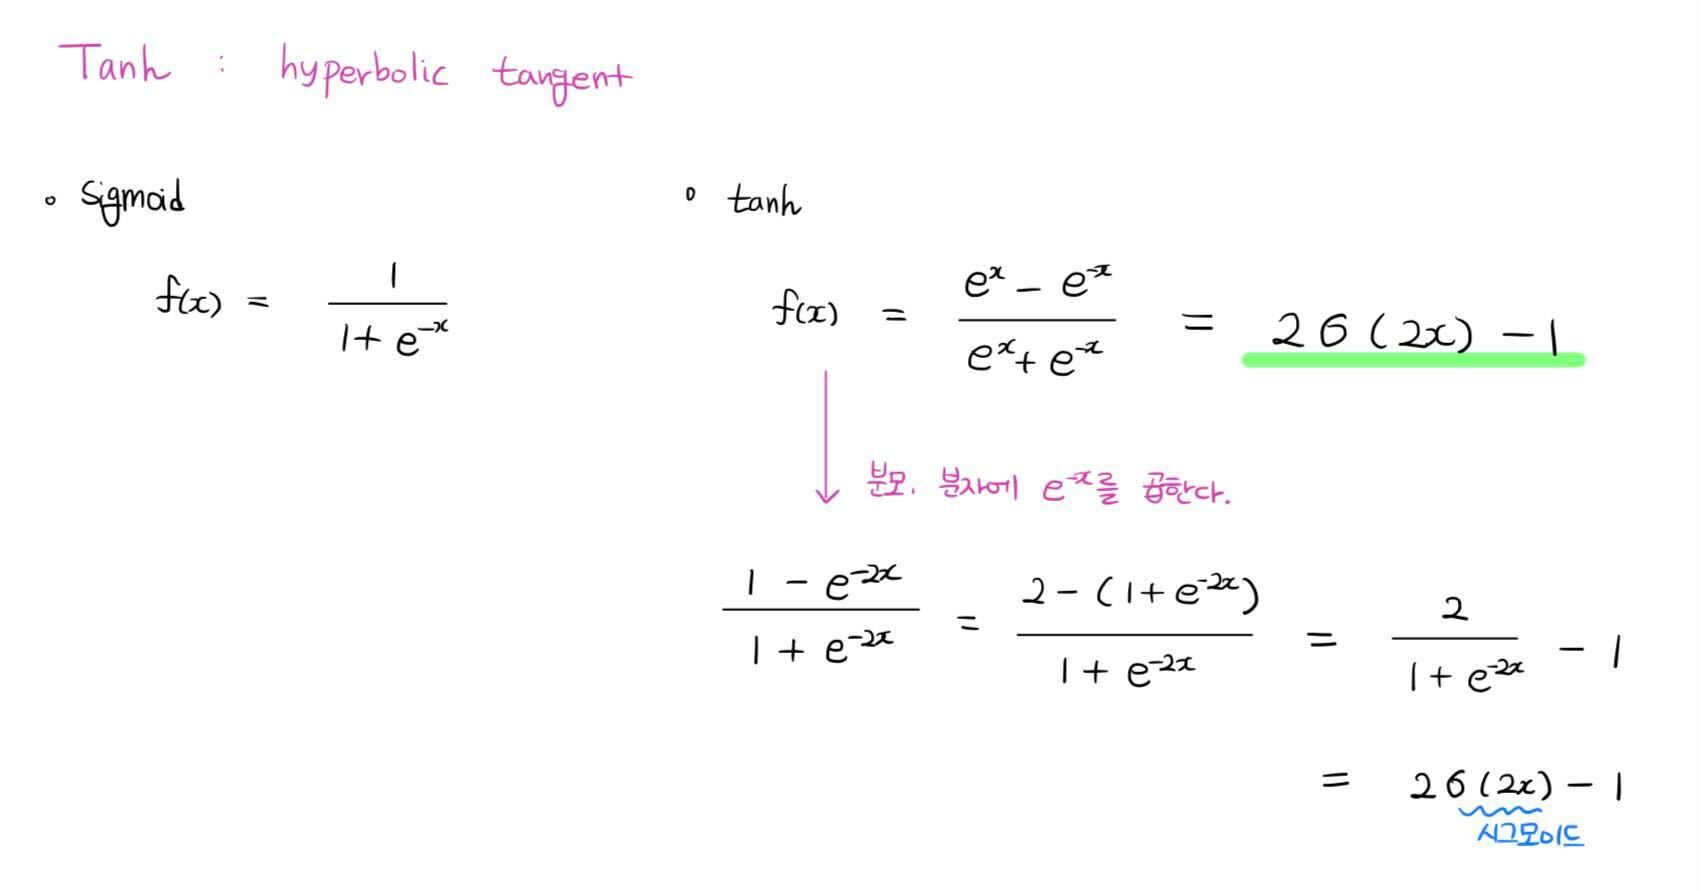 Tanh : hyperbolic tangent
• Sigmoid
f(x) = 1 / (1 + e^-x)
• tanh
f(x) = (e^x - e^-x) / (e^x + e^-x) = 2σ(2x) - 1
분모, 분자에 e^-x를 곱한다.
(1 - e^-2x) / (1 + e^-2x) = (2 - (1 + e^-2x)) / (1 + e^-2x) = 2 / (1 + e^-2x) - 1
= 2σ(2x) - 1
시그모이드